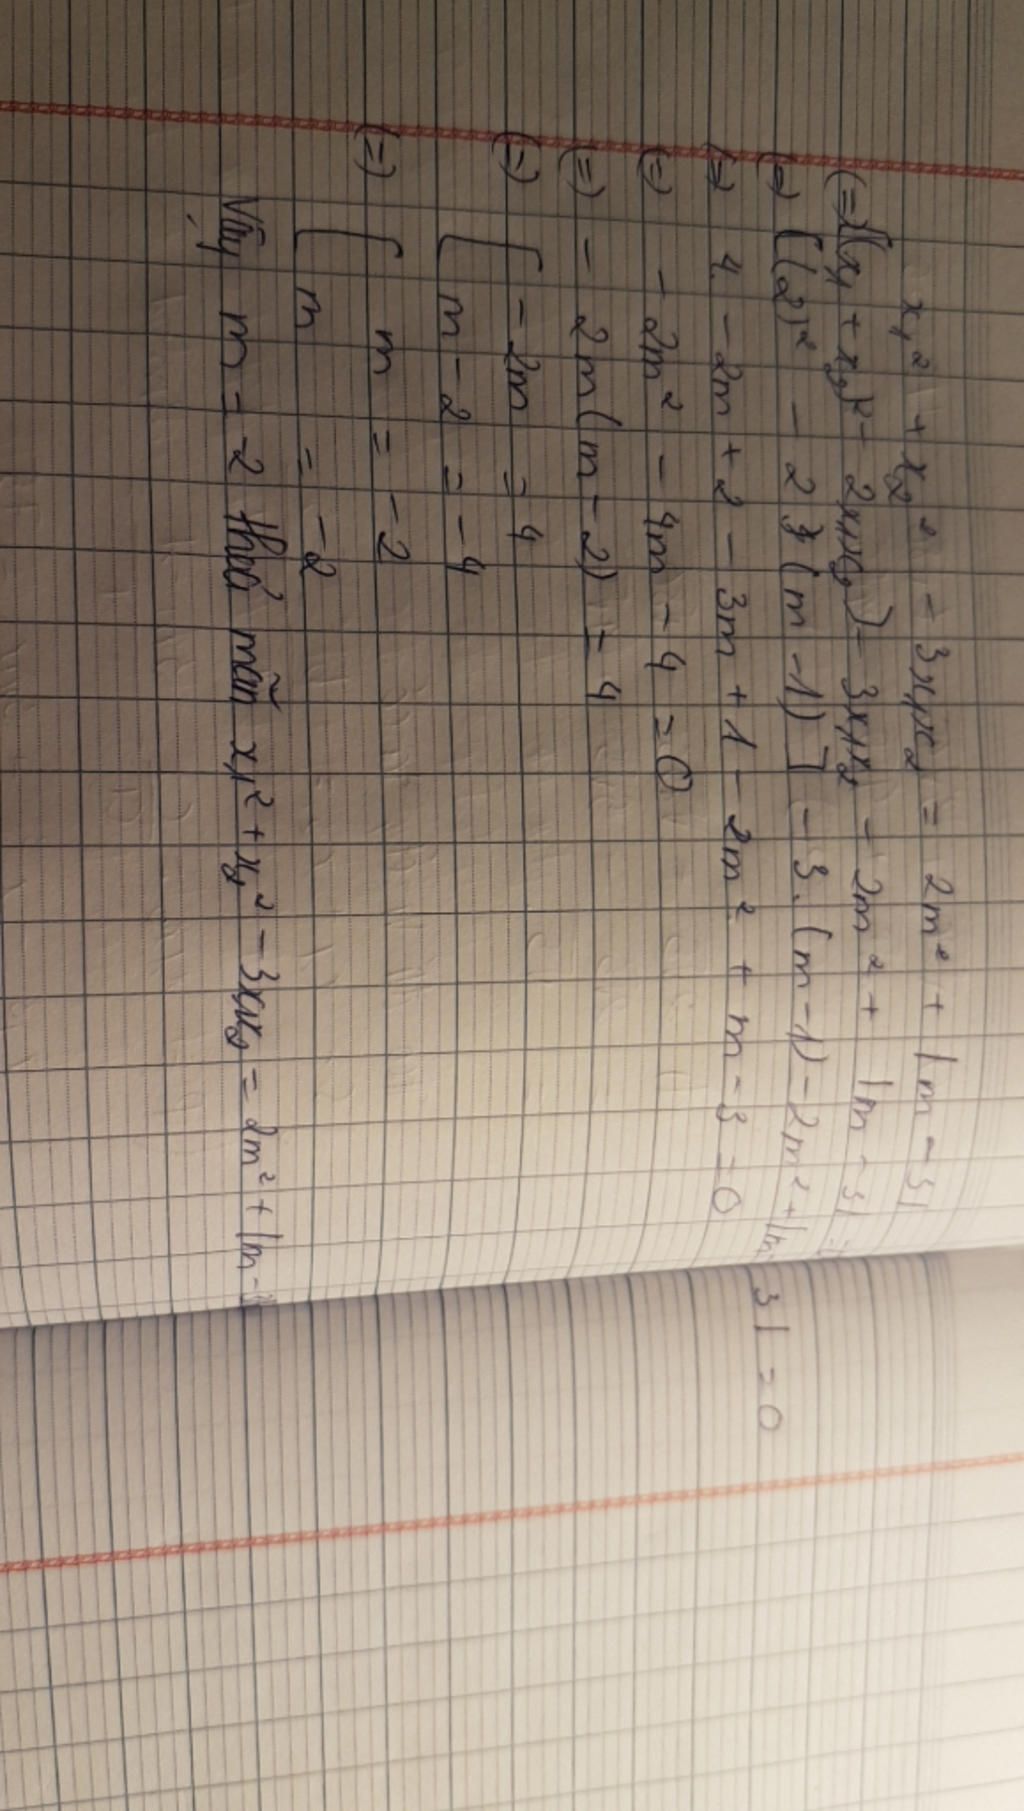 x₁² + x₂² - 3x₁x₂ = 2m² + |m - 3|
(=) [(x₁ + x₂)² - 2x₁x₂] - 3x₁x₂ - 2m² + |m - 3| =
(=) [(2)² - 2 (m - 1)] - 3.(m - 1) - 2m² + |m - 3| = 0
(=) 4 - 2m + 2 - 3m + 1 - 2m² + m - 3 = 0
(=) - 2m² - 4m - 4 = 0
(=) - 2m(m - 2) = 4
(=) [ - 2m = 4
[ m - 2 = - 4
(=) [ m = - 2
[ m = - 2
Vậy m = -2 thoả mãn x₁² + x₂² - 3x₁x₂ = 2m² + |m - 3